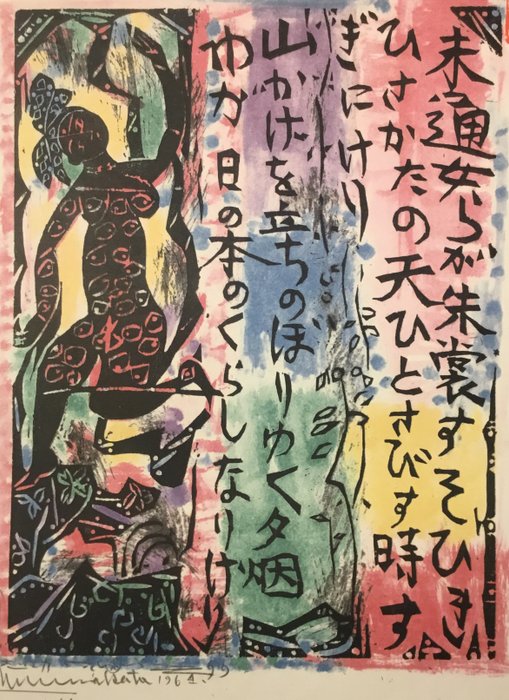 未通女らが朱裳すそひき
ひさかたの天ひとさびす時す
ぎにけり
山かげを立ちのぼりゆく夕烟
わが日の本のくらしなりけり
1961